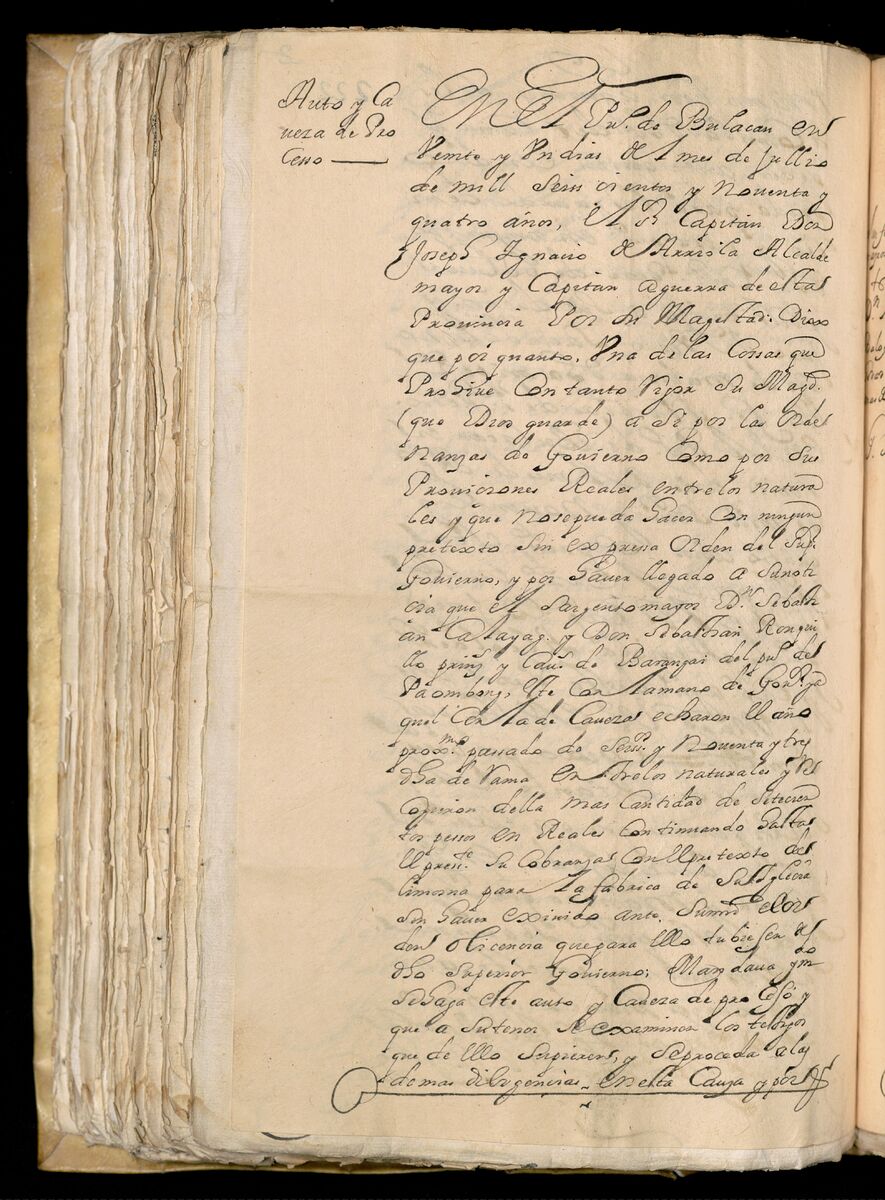 Auto y Ca
veza de Pro
Cesso
En El Pu.º de Bulacan en
Veinte y Un dias del mes de Jullio
de mill Seiscientos y Noventa y
quatro años, el S.r Capitan Don
Joseph Ygnacio de Arriola Alcalde
mayor y Capitan aguerra de esta
Provincia Por Su Magestad. Dixo
que por quanto, Una de las Cossas que
Prohive Con tanto Vigor Su Mag.d
(que Dios guarde) a Si por las Orde
nanzas de Govierno Como por sus
Proviciones Reales entre los natura
les y que nosepueda hacer Con ningun
pretexto Sin expressa Orden del Sup.r
Govierno, y por haver llegado a sunoti
cia que el Sargentomayor D.n Sebasti
an Calayag. y Don Sebastian Ronqui
llo prin.s y Cav.s de Barangai del pu.º de
Paombong, Con la mano de Gov.r
que de Cavezas echaron El año
prox.mo passado de Seis.s y Noventa y tres
dha de rama Entrelos naturales y Re
Cogieron della mas Cantidad de Setecien
tos pessos en Reales Continuando hasta
El pres.te Su Cobranza Con El pretexto de
limosna para La fabrica de Su Yglecia
Sin haver exivido ante Sumrd el Or
den O licencia quepara Ello tubiesen de
dho Superior Govierno; Mandava y m.do
Sehaga este auto y Caveza de proceso y
que a Sutenor Se examinen los testigos
que de Ello Supieren, y Seproceda alas
demas diligencias en esta Causa y por